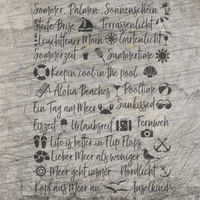 Sommer Palmen Sonnenschein
Steife Brise Terrassenlicht
Leuchtfeuer Moin Gartenlicht
Sommerzeit Summertime
Keepin cool in the pool
Aloha Beaches Pooltime
Ein Tag auf Meer Sunkissed
Eiszeit Urlaubsreif Fernweh
Life is better in Flip Flops
Lieber Meer als weniger
Meer geht immer Nordlicht
Kopf aus Meer an Inselkind